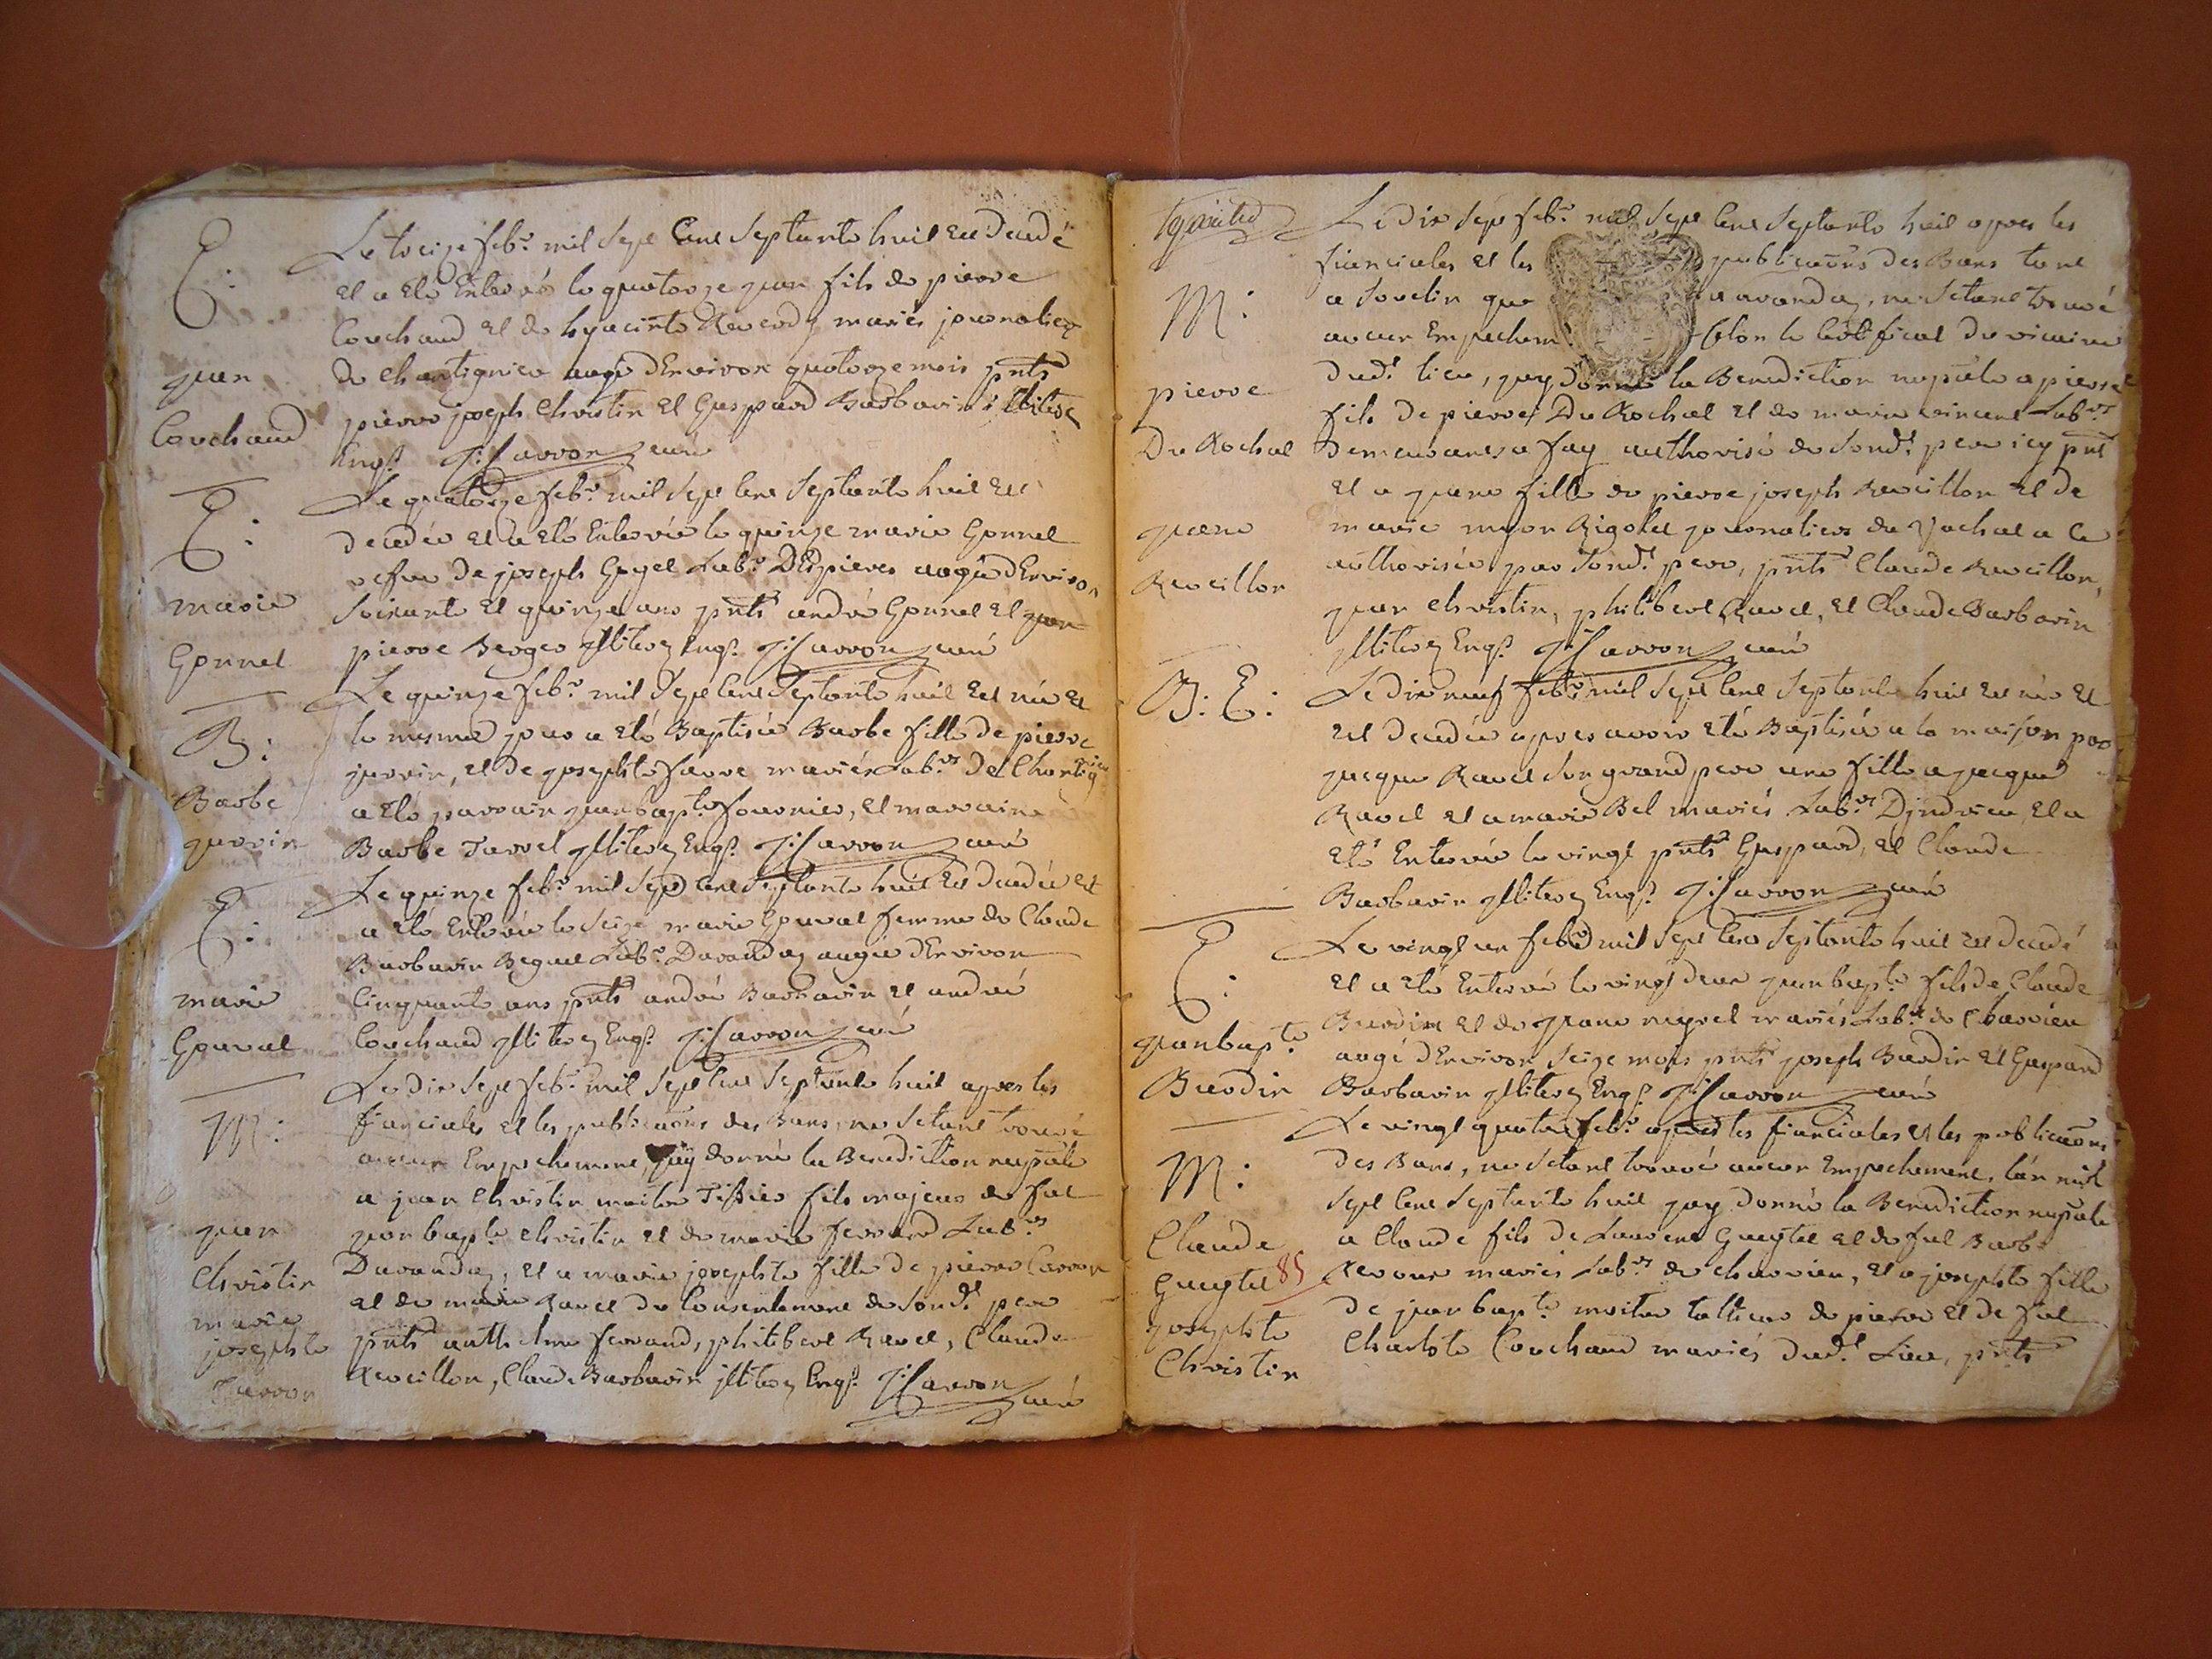 E:
jean
Couchaud
Le treize febr. mil sept cent septante huit est decedé
et a eté enterré le quatorze jean fils de pierre
Couchaud et de hyacinte mariés journaliers
de Chantignieu aagé d'environ quatorze mois pnts
pierre joseph Christin et Gaspard Barbarin illiterez
Enqs. J: Carron curé
E:
marie
Gonnel
Le quatorze febr. mil sept cent septante huit est
decedée et a eté enterrée le quinze marie Gonnel
vefve de joseph Labr. aagée d'environ
soixante et quinze ans pnts andré Gonnel et jean
pierre Berger illiterez Enqs. J: Carron curé
B:
Barbe
juvin
Le quinze febr. mil sept cent septante huit est née et
le mesme jour a eté Baptisée Barbe fille de pierre
juvin, et de josephte favre mariés Labrs. de
a eté parrain jeanbapte. fournier, et marraine
Barbe illiterez Enqs. J: Carron curé
E:
marie
Gouval
Le quinze febr. mil sept cent septante huit est decedée et
a eté enterrée le seize marie Gouval femme de Claude
Barbarin Labr. Davanday aagée d'environ
Cinquante ans pnts andré Barbarin et andré
Couchaud illiterez Enqs. J: Carron curé
M:
jean
Christin
marie
josephte
Carron
Le dix sept febr. mil sept cent septante huit apres les
fianciales et les publicaons des Bans, ne s'etant trouvé
aucun Empechement, j'ay donné la Benediction nuptiale
a jean Christin maitre fils majeur de fut
jean bapte. Christin et de marie ferrand Labrs.
Davanday, et a marie josephte fille de pierre Carron
et de marie Ravel du Consentement de sond. pere
pnts ferrand, philibert Ravel, Claude
Revoillon, Claude Barbarin illiterez Enqs. J: Carron
curé
M:
pierre
Du Rochat
jeane
Revoillon
Le dix sept febr. mil sept cent septante huit apres les
fianciales et les publicaons des Bans tant
a que a avanday, ne s'etant trouvé
aucun Empechem selon le Certificat du vicaire
dud. lieu, j'ay donné la Benediction nuptiale a pierre
fils de pierre Du Rochat et de marie vincent Labrs.
demeurants a fay authorisé de sond. pere icy pnt
et a jeane fille de pierre joseph Revoillon et de
marie Rigolet journaliers
authorisée par sond. pere, pnts Claude Revoillon,
jean Christin, philibert Ravel, et Claude Barbarin
illiterez Enqs. J: Carron curé
B: E:
Le dix neuf febr. mil sept cent septante huit est née et
est decedée apres avoir eté Baptisée a la maison par
jacque Ravel son grand pere une fille a jacque
Ravel et a marie Bel mariés Labrs. Et a
eté Enterrée le vingt pnts Gaspard, et Claude
Barbarin illiterez Enqs. J: Carron curé
E:
jeanbapte.
Burdin
Le vingt un febr. mil sept cent septante huit est decedé
et a eté Enterré le vingt deux jeanbapte. fils de Claude
Burdin et de jeane mariés Labrs. de Charvieu
aagé d'environ seize mois pnts joseph Burdin et Gaspard
Barbarin illiterez Enqs. J: Carron curé
M:
Claude
85
josephte
Christin
Le vingt quatre febr. apres les fianciales et les publicaons
des Bans, ne s'etant trouvé aucun Empechement, l'an mil
sept cent septante huit j'ay donné la Benediction nuptiale
a Claude fils de Laurent et de fut Barbe
mariés Labrs. de Charvieu, et a josephte fille
de jean bapte. maitre tallieur de pierre et de fut
Charlote Couchaud mariés dud. Lieu, pnts